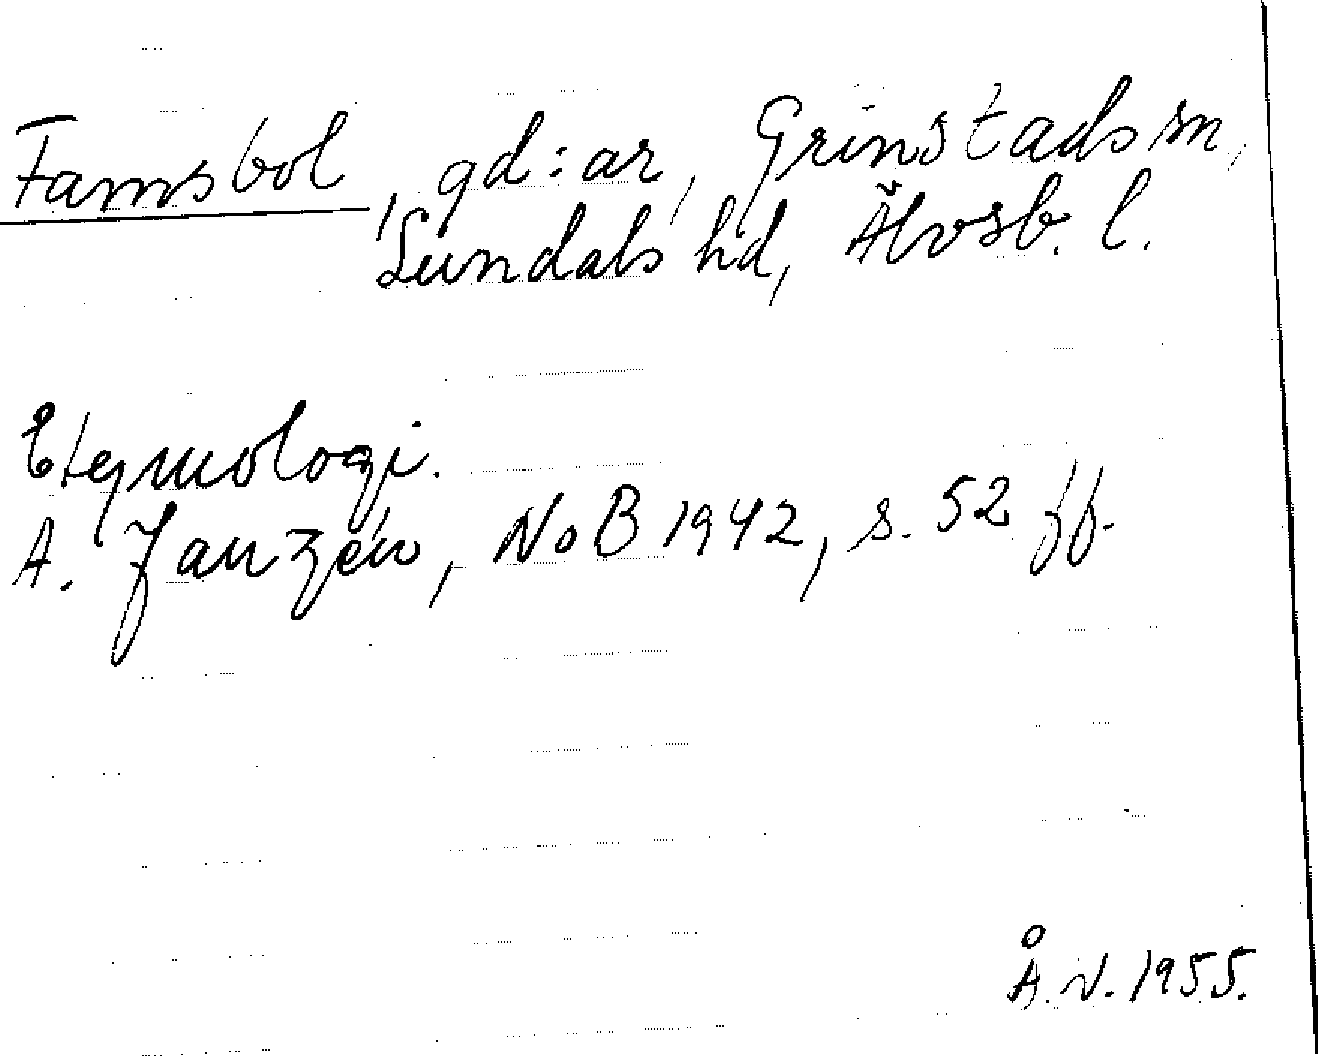 Famsbol, gd:ar, Grinstads sn,
Sundals hd, Älvsb. l.
Etymologi.
A. Janzén, NoB 1942, s. 52 ff.
Å.V. 1955.